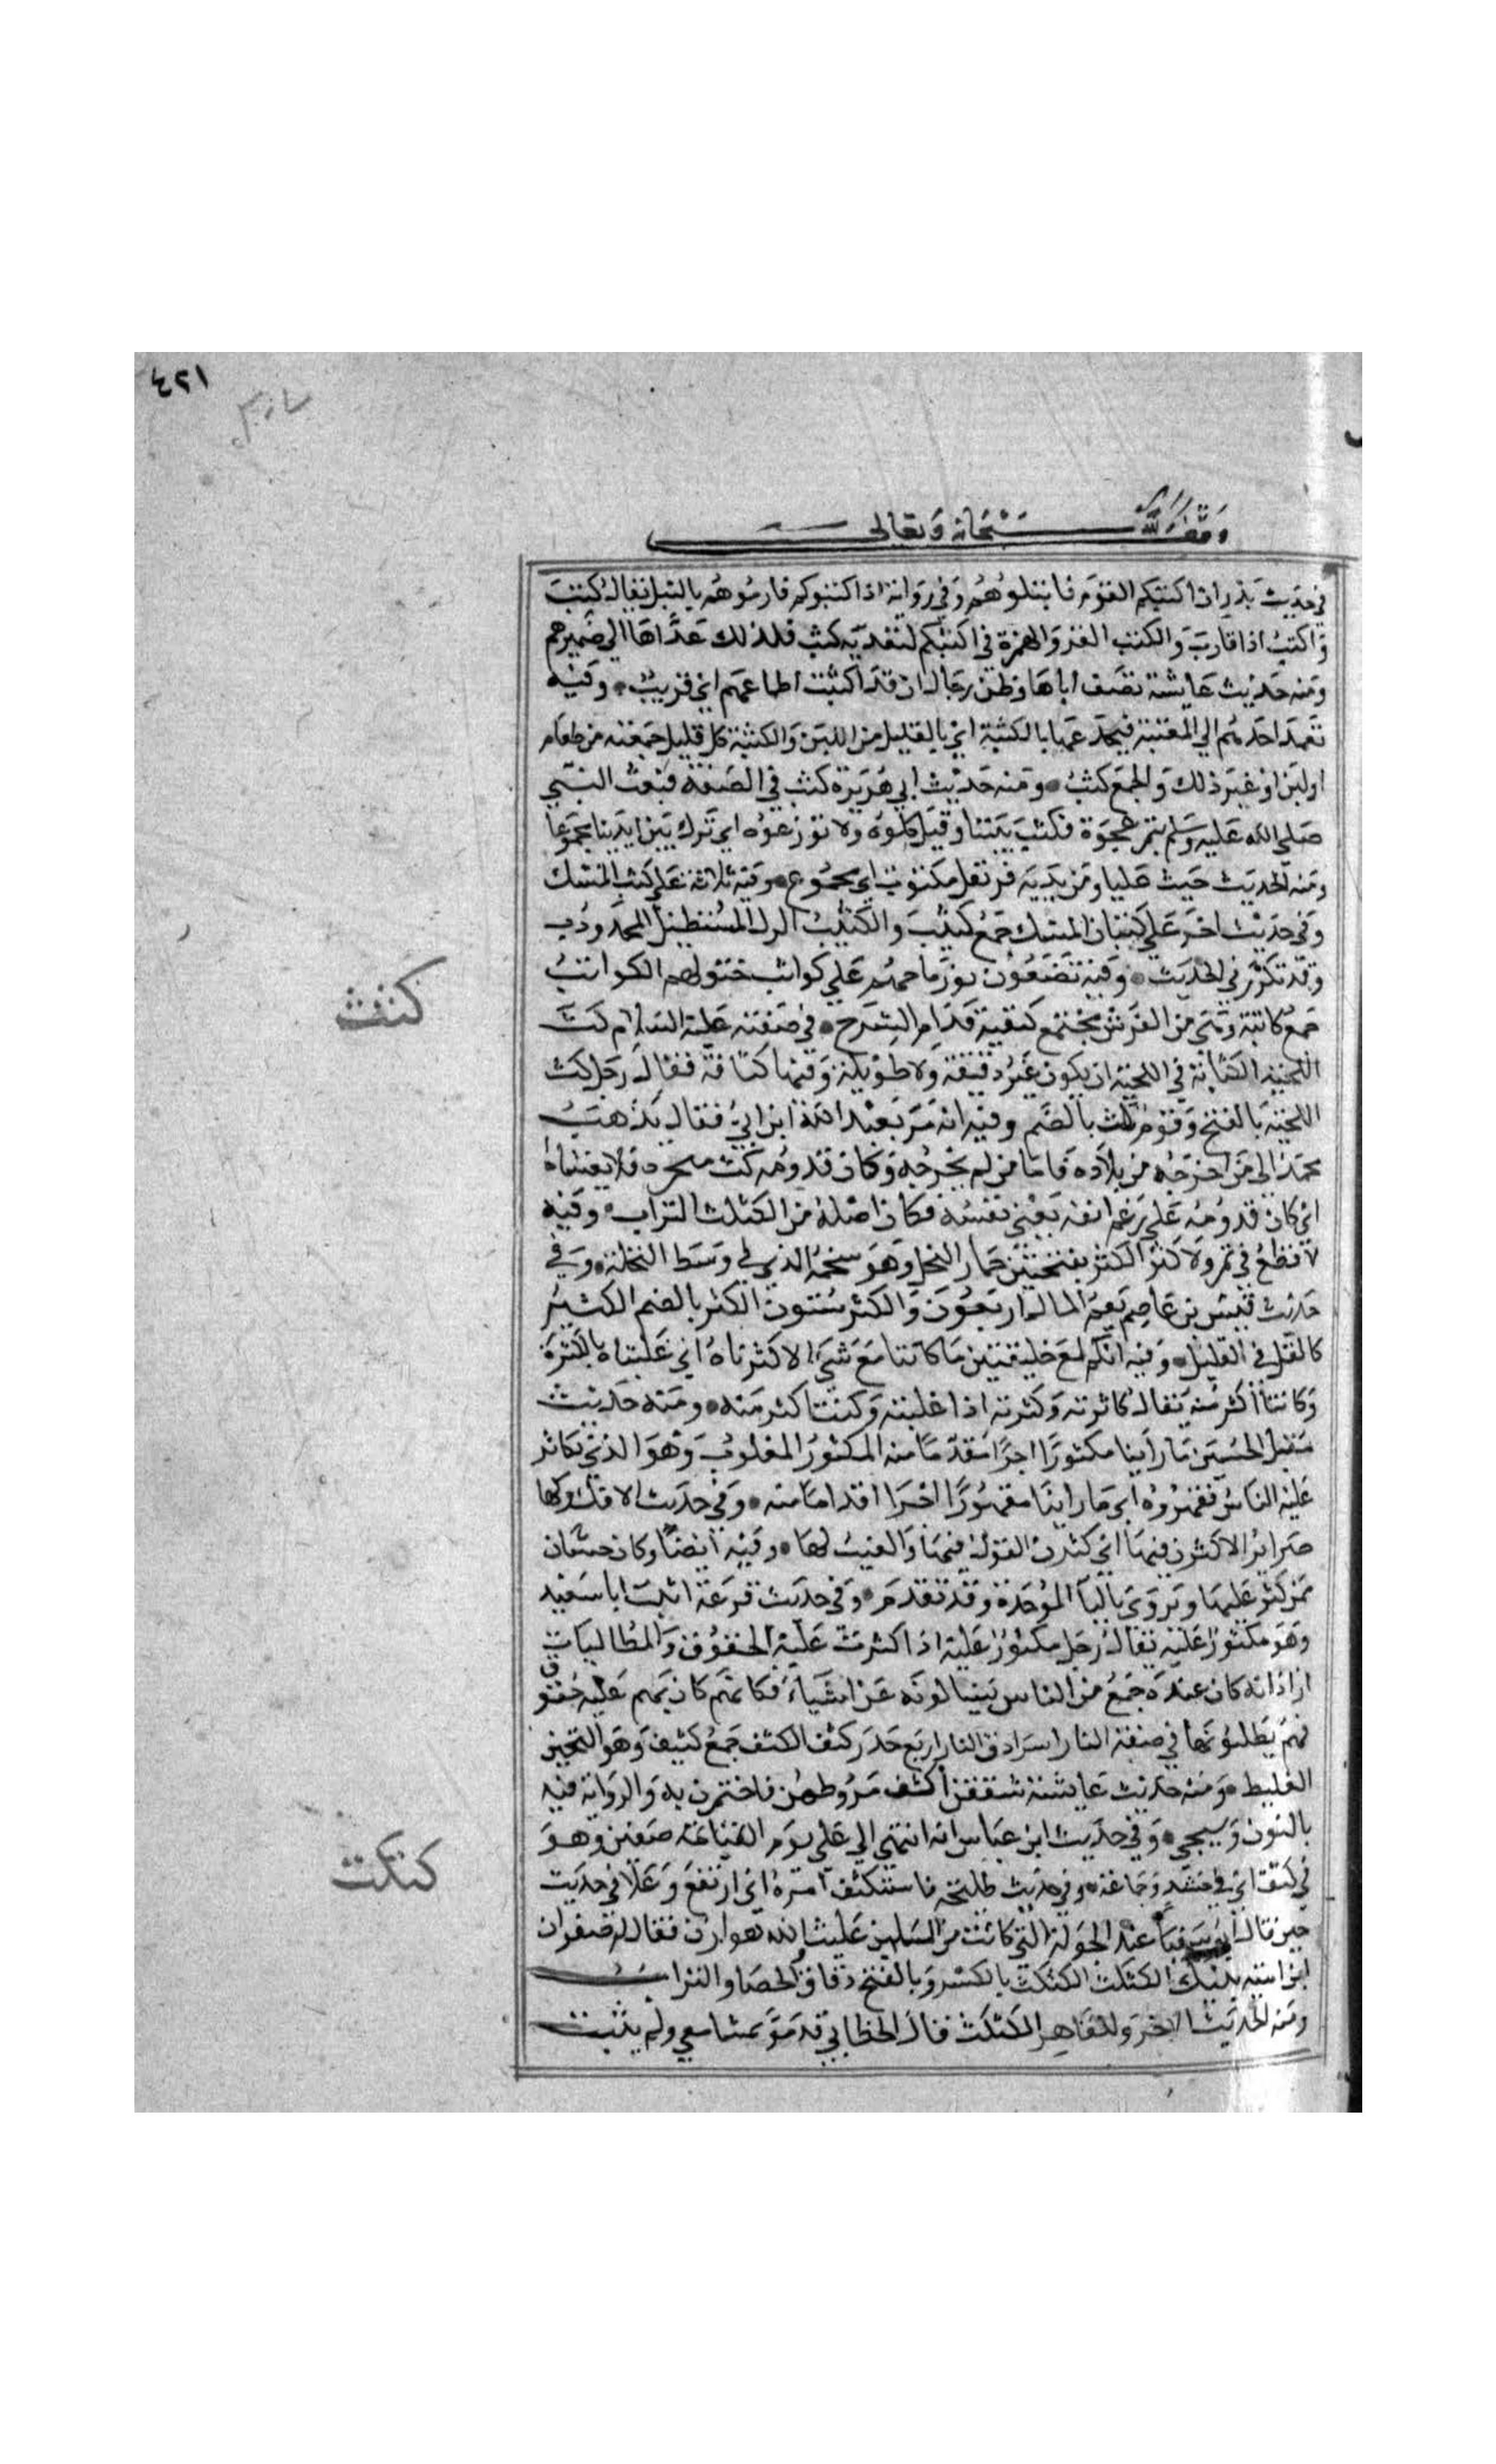 ٤٢١
وقف لله سبحانه وتعالى
في حديث بدر ان اكتبكم القوم فانبلوهم وفي رواية اذا كثبوكم فارموهم بالنبل يقال كثب
واكثب اذا قارب والكثب القرب والهمزة في اكثبكم لتعدية كثب فلذلك عداها الي ضميرهم
ومنه حديث عايشة تصف اباها وظن رجال ان قد اكثبت اطماعهم اي قربت وفيه
يعمد احدكم الي المغيبة فيخدعها بالكثبة اي بالقليل من اللبن والكثبة كل قليل جمعته من طعام
او لبن او غير ذلك والجمع كثب ومنه حديث ابي هريرة كنت في الصفة فبعث النبي
صلي الله عليه وسلم بتمر عجوة فكثب بيننا وقيل كلوه ولا توزعوه اي ترك بين ايدينا مجموعا
ومنه الحديث جيت عليا وبين يديه قرنفل مكثوب اي مجموع وفيه ثلاثة علي كثب المسك
وفي حديث اخر علي كثبان المسك جمع كثيب والكثيب الرمل المستطيل المحدودب
وقد تكرر في الحديث وفيه تضعون رماحهم علي كواثب خيولهم الكواثب
جمع كاثبة وهي من الفرس مجتمع كتفيه قدام السرج في صفته عليه السلام كث
كثث
اللحية الكثاثة في اللحية ان يكون غير دقيقة ولا طويلة وفيها كثافة فقال رجل كث
اللحية بالفتح وقوم كث بالضم وفيه انه مر بعبد الله ابن ابي فقال يذهب
محمد الي من اخرجه من بلاده فاما من لم يخرجه وكان قدومه كث منخره فلا يغشاه
اي كان قدومه علي رغم انفه يعني نفسه فكان اصله من الكثكث التراب وفيه
لا قطع في ثمر ولا كثر الكثر بفتحتين جمار النخل وهو شحمه الذي في وسط النخلة وفي
حديث قيس بن عاصم نعم المال اربعون والكثر ستون الكثر بالضم الكثير
كالقل في القليل وفيه انكم لمع خليقتين ما كانتا مع شيء الا كثرتاه اي غلبتاه بالكثرة
وكانتا اكثر منه يقال كاثرته وكثرته اذا غلبته وكنت اكثر منه ومنه حديث
مقتل الحسين ما راينا مكثورا اجرا مقدما منه المكثور المغلوب وهو الذي تكاثر
عليه الناس فقهروه اي ما راينا مقهورا اجرا اقداما منه وفي حديث الافك ولها
ضراير الا كثرن فيها اي كثرن القول فيها والعيب لها وفيه ايضا وكان حسان
ممن كثر عليها ويروي بالباء الموحدة وقد تقدم وفي حديث قزعة اتيت ابا سعيد
وهو مكثور عليه يقال رجل مكثور عليه اذا كثرت عليه الحقوق والمطالبات
اراد انه كان عنده جمع من الناس يسالونه عن اشياء فكانهم كان لهم عليه حقوق
فهم يطلبونها في صفة النار سرادق النار اربع جدر كثف الكثف جمع كثيف وهو الثخين
الغليظ ومنه حديث عايشة شققن اكثف مروطهن فاختمرن به والرواية فيه
بالنون وسيجي وفي حديث ابن عباس انه انتهي الي علي يوم صفين وهو
كثكث
في كثف اي في حشد وجماعة وفي حديث طليحة فاستكثف امره اي ارتفع وعلا في حديث
حين قال ابو سفيان عند الجولة التي كانت من المسلمين غلبت والله هوازن فقال له صفوان
ابن امية بفيك الكثكث الكثكث بالكسر وبالفتح دقاق الحصا والتراب
ومنه الحديث الاخر وللعاهر الكثكث قال الخطابي قد مر بمسامعي ولم يثبت